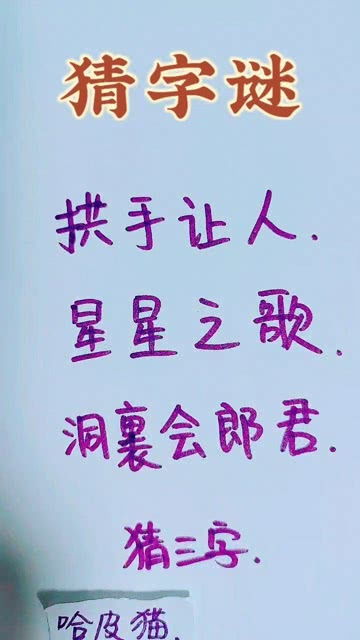 猜字谜
拱手让人.
星星之歌.
洞裏会郎君.
猜三字.
哈皮猫.